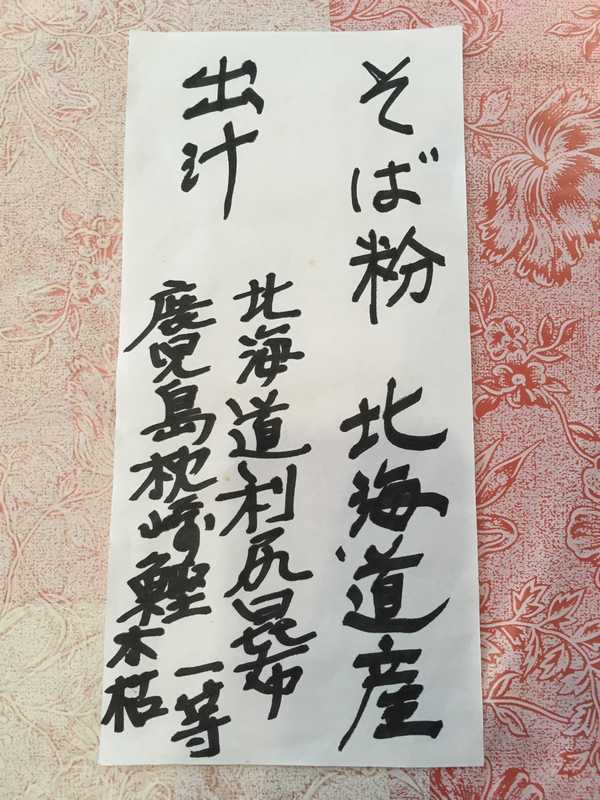 そば粉 北海道産
出汁
北海道利尻昆布
一等
鹿児島枕崎鰹本枯